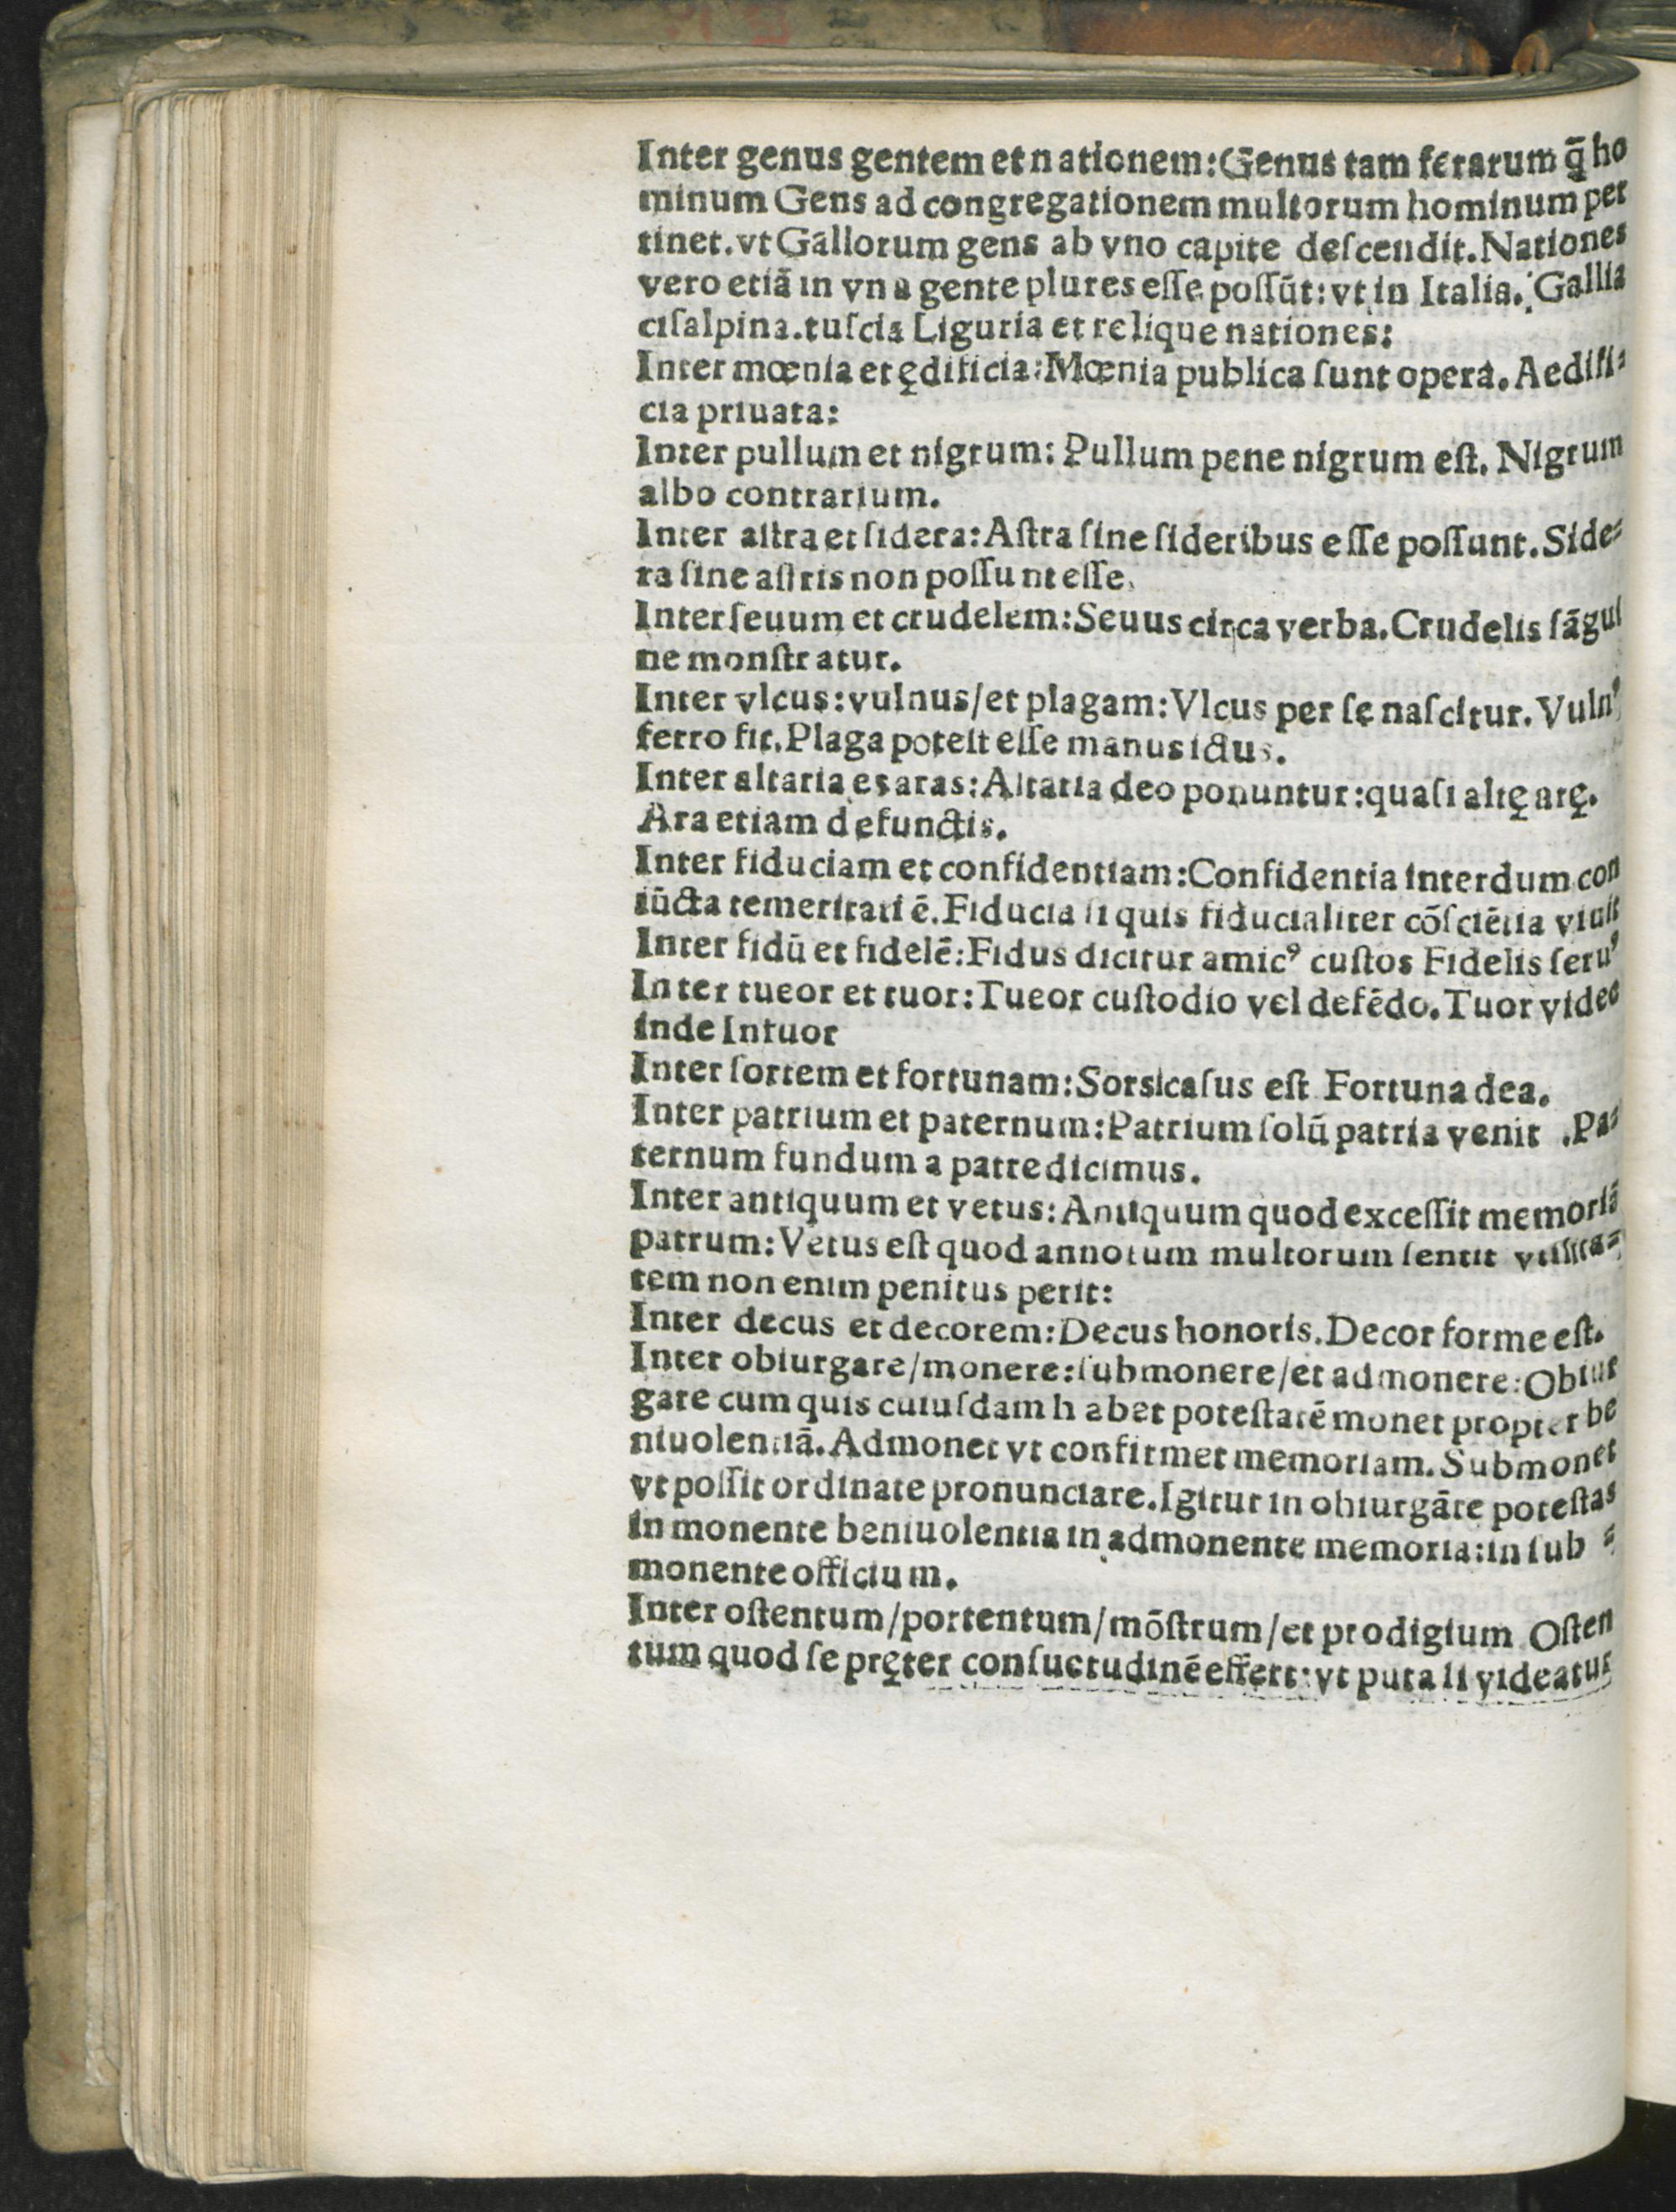 Inter genus gentem et nationem: Genus tam ferarum q̃ ho
minum Gens ad congregationem multorum hominum per
tinet. vt Gallorum gens ab vno capite deſcendit. Nationes
vero etiã in vna gente plures eſſe poſſũt: vt in Italia. Gallia
ciſalpina. tuſcia Liguria et relique nationes:
Inter mœnia et ędificia: Mœnia publica ſunt opera. Aedifi⸗
cia priuata:
Inter pullum et nigrum: Pullum pene nigrum eſt. Nigrum
albo contrarium.
Inter aſtra et ſidera: Aſtra ſine ſideribus eſſe poſſunt. Side⸗
ra ſine aſtris non poſſunt eſſe.
Inter ſeuum et crudelem: Seuus circa verba. Crudelis ſãgui
ne monſtratur.
Inter vlcus: vulnus/ et plagam: Vlcus per ſe naſcitur. Vulnꝰ
ferro fit. Plaga poteſt eſſe manus ictus.
Inter altaria es aras: Altaria deo ponuntur: quaſi altę arę.
Ara etiam defunctis.
Inter fiduciam et confidentiam: Confidentia interdum con
iũcta temeritati ẽ. Fiducia ſi quis fiducialiter cõſciẽtia viuit
Inter fidũ et fidelẽ: Fidus dicitur amicꝰ cuſtos Fidelis ſeruꝰ
Inter tueor et tuor: Tueor cuſtodio vel defẽdo. Tuor video
inde Intuor
Inter ſortem et fortunam: Sorsicaſus eſt Fortuna dea.
Inter patrium et paternum: Patrium ſolũ patria venit . Pa⸗
ternum fundum a patre dicimus.
Inter antiquum et vetus: Antiquum quod exceſſit memoriã
patrum: Vetus eſt quod annotum multorum ſentit vtilita⸗
tem non enim penitus perit:
Inter decus et decorem: Decus honoris. Decor forme eſt.
Inter obiurgare/ monere: ſubmonere/ et admonere: Obiur
gare cum quis cuiuſdam habet poteſtatẽ monet propter be
niuolentiã. Admonet vt confirmet memoriam. Submonet
vt poſſit ordinate pronunciare. Igitur in obiurgãte poteſtas
in monente beniuolentia in admonente memoria: in ſub ⸗
monente officium.
Inter oſtentum/ portentum/ mõſtrum/ et prodigium Oſten
tum quod ſe pręter conſuetudinẽ effert: vt puta ſi videatur